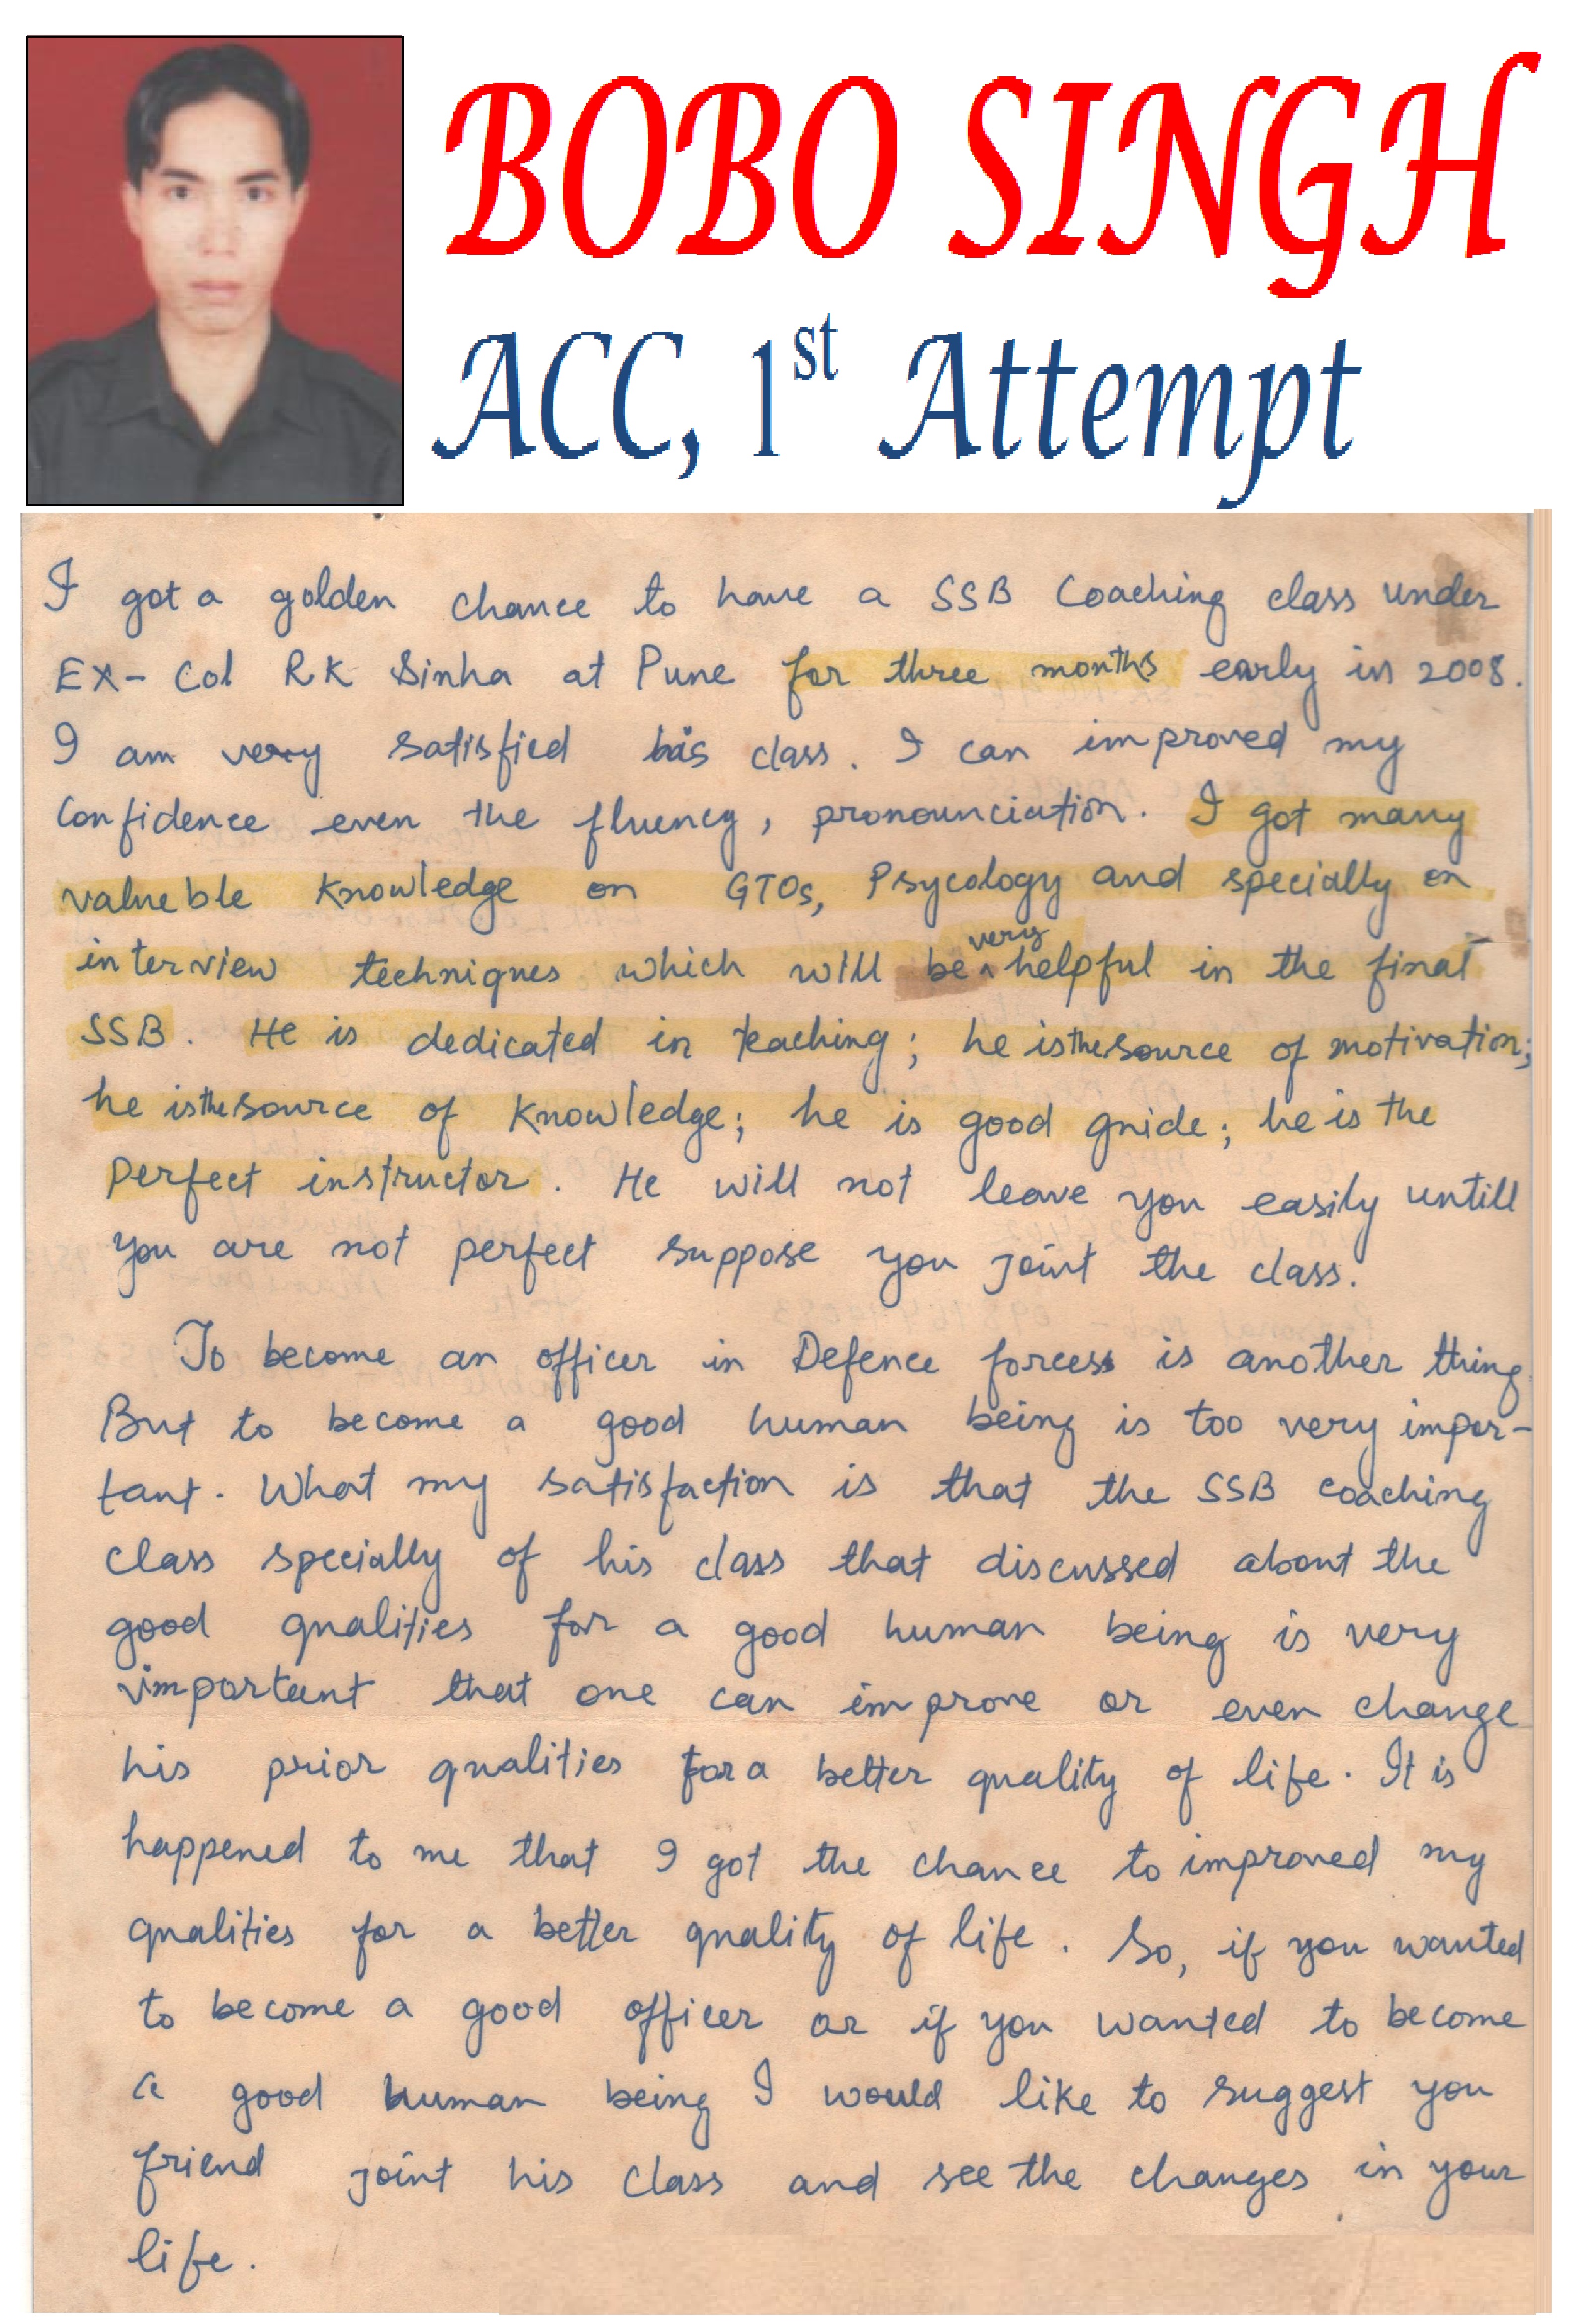 BOBO SINGH
ACC, 1st Attempt
I got a golden chance to have a SSB Coaching class under
EX- Col RK Sinha at Pune for three months early in 2008.
I am very satisfied his class. I can improved my
Confidence even the fluency, pronounciation. I got many
valueble knowledge on GTOs, Psycology and specially on
interview techniques which will be very helpful in the final
SSB. He is dedicated in teaching; he is the source of motivation;
he is the source of knowledge; he is good guide; he is the
perfect instructor. He will not leave you easily untill
you are not perfect suppose you joint the class.
To become an officer in Defence forcess is another thing
But to become a good human being is too very impor-
tant. What my satisfaction is that the SSB coaching
class specially of his class that discussed about the
good qualities for a good human being is very
important that one can improve or even change
his prior qualities for a better quality of life. It is
happened to me that I got the chance to improved my
qualities for a better quality of life. So, if you wanted
to become a good officer or if you wanted to become
a good human being I would like to suggest you
friend joint his class and see the changes in your
life.